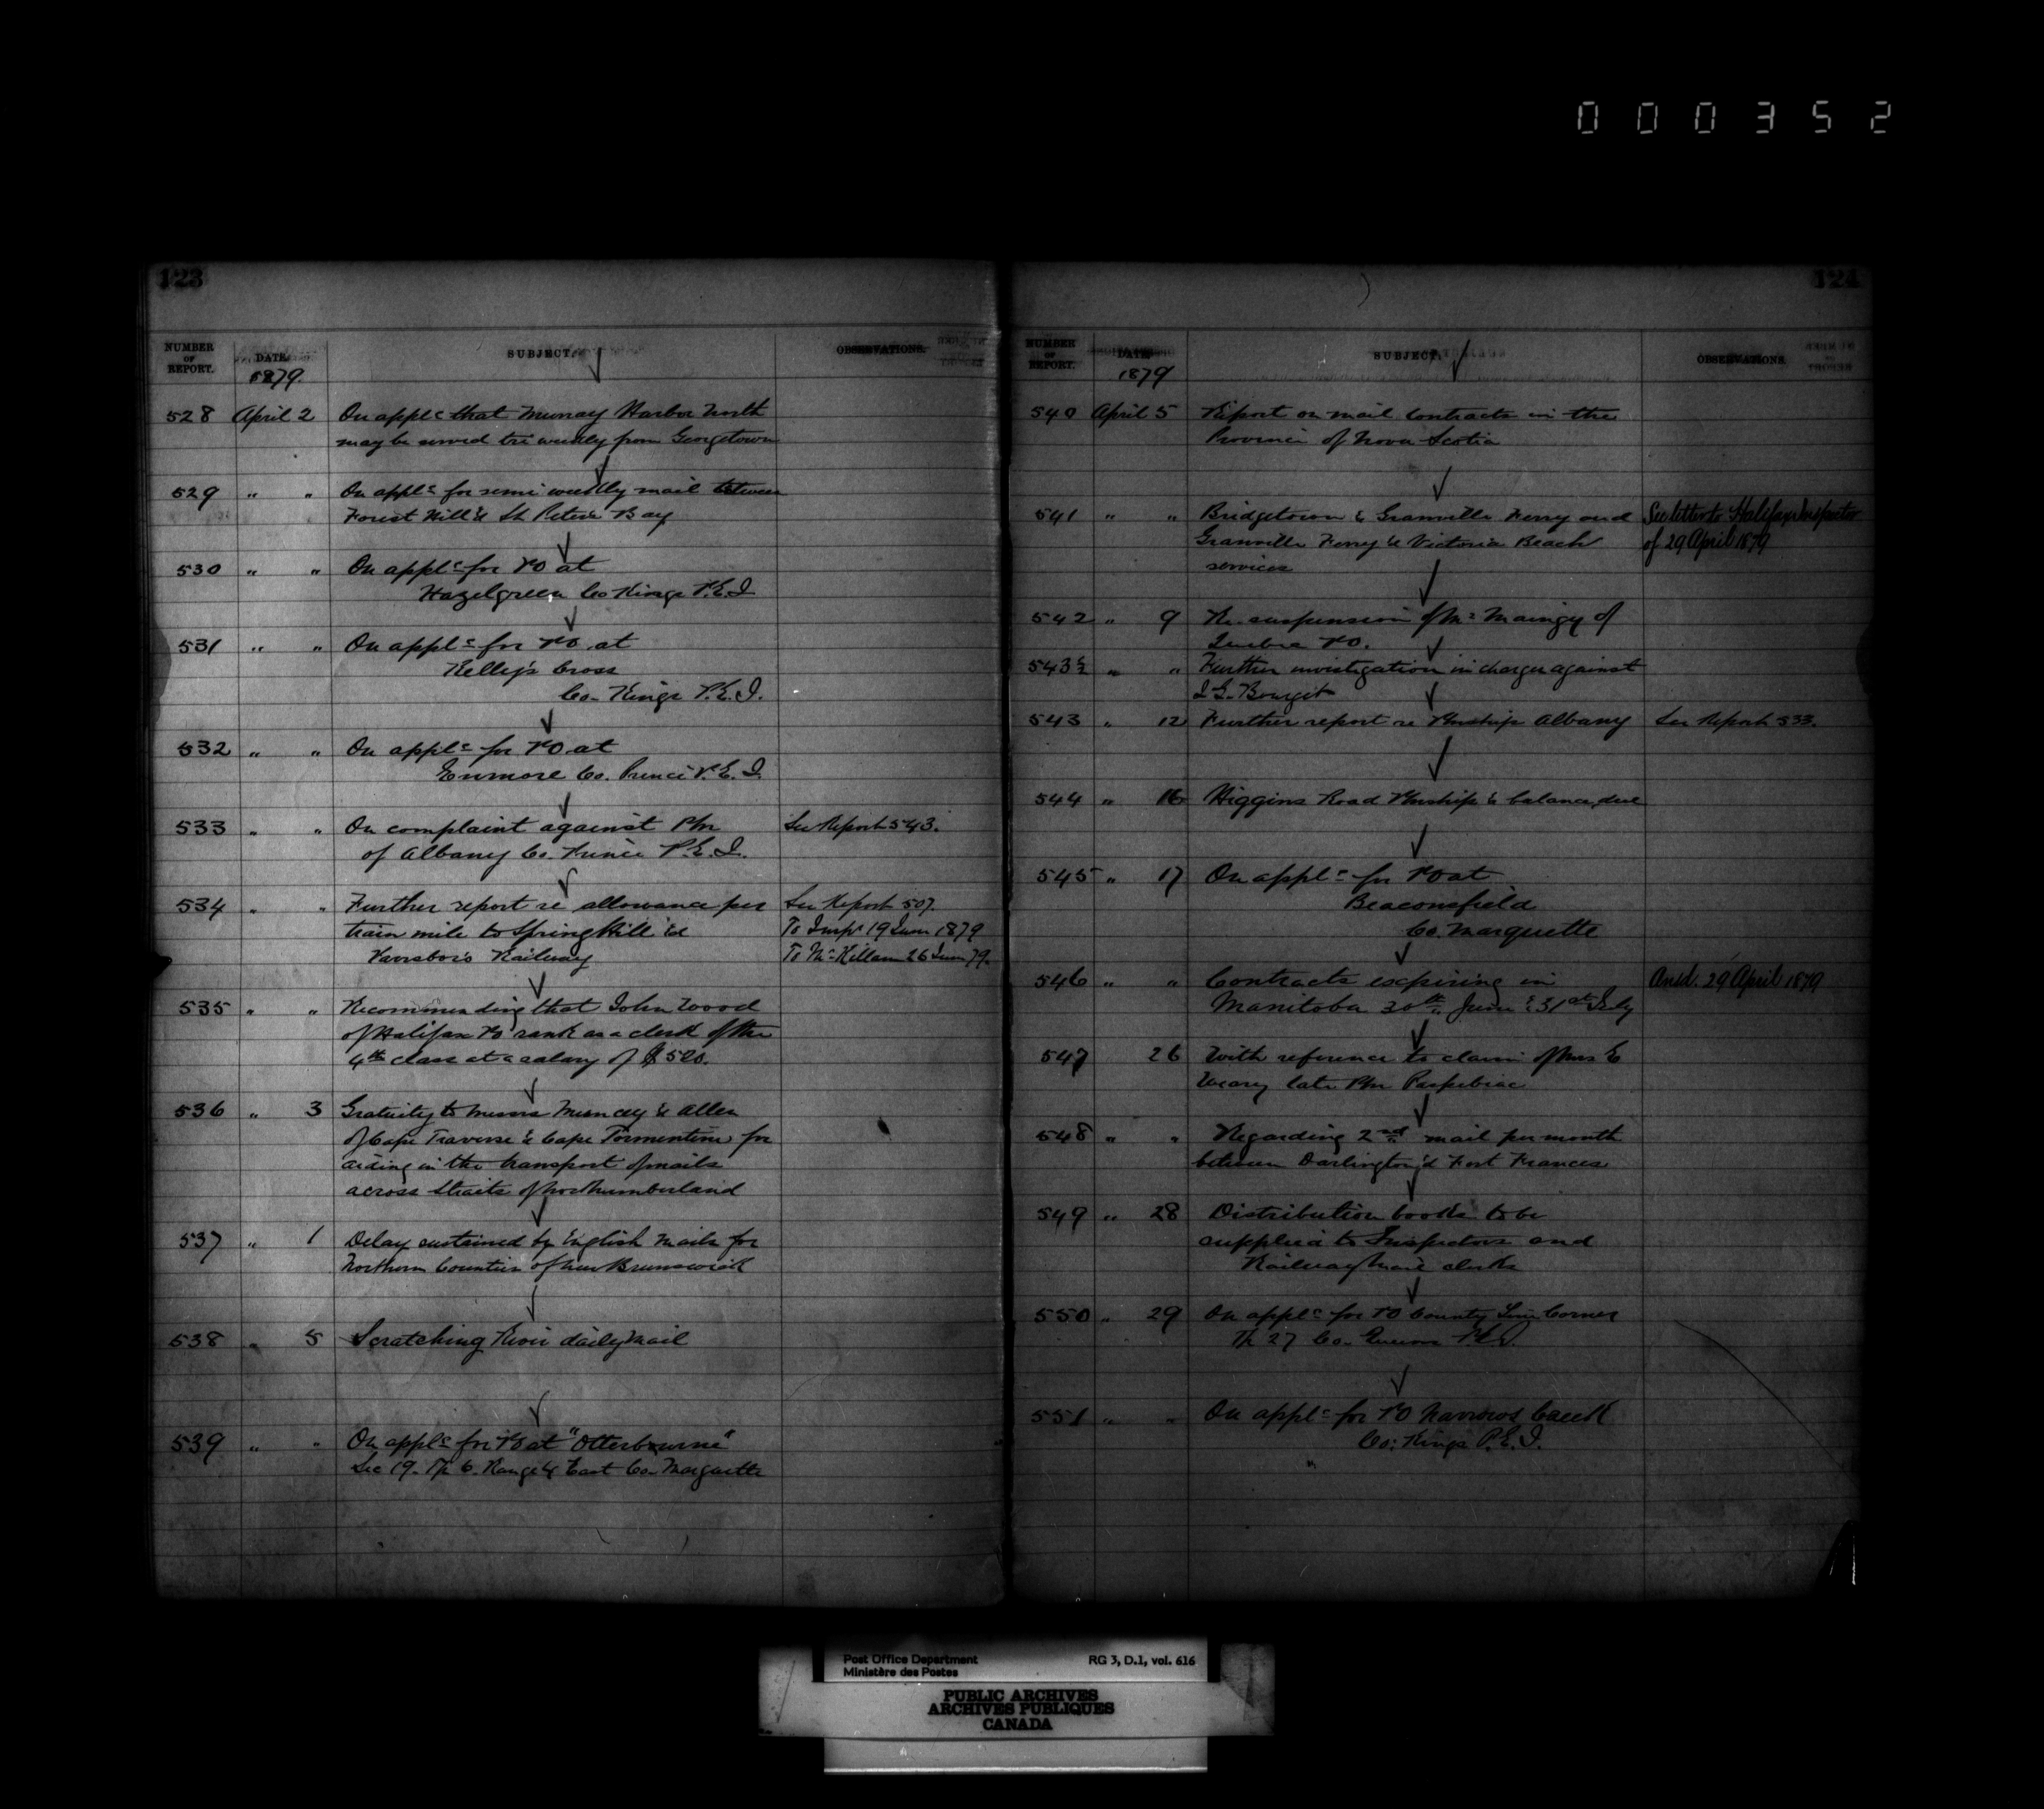 0 0 0 3 5 2
123
NUMBER OF REPORT. DATE. SUBJECT. OBSERVATIONS.
1879.
528 April 2 On applc that Murray Harbor North
may be served tri weekly from Georgetown
529 " " On applc for semi weekly mail between
Forest Hill & St Peters Bay
530 " " On applc for PO at
Hazelgreen Co Kings P.E.I
531 " " On applc for PO at
Kelly's Cross
Co. Kings P.E.I.
532 " " On applc for PO at
Enmore Co. Prince P.E.I.
533 " " On complaint against Pmr See Report 543.
of Albany Co. Prince P.E.I.
534 " " Further report re allowance per See Report 507.
train mile to Spring Hill & To Inspr 19 June 1879
Parrsboro Railway To Mr Killam 26 June 79.
535 " " Recommending that John Wood
of Halifax PO rank as a clerk of the
4th class at a salary of $520.
536 " 3 Gratuity to Messrs Muncey & Allen
of Cape Traverse & Cape Tormentine for
aiding in the transport of mails
across Straits of Northumberland
537 " 1 Delay sustained by English Mails for
Northern Counties of New Brunswick
538 " 5 Scratching River daily mail
539 " " On applc for PO at "Otterbourne"
Sec 19. Tp 6. Range 4 East Co. Marquette
124
NUMBER OF REPORT. DATE. SUBJECT. OBSERVATIONS.
1879
540 April 5 Report on mail contracts in the
Province of Nova Scotia
541 " " Bridgetown & Granville Ferry and See letter to Halifax Inspector
Granville Ferry & Victoria Beach of 29 April 1879
services
542 " 9 Re. suspension of Mr Maingy of
Quebec PO.
543½ " " Further investigation in charges against
Bourget
543 " 12 Further report re Pmrship Albany See Report 533.
544 " 16 Higgins Road Pmrship & balance due
545 " 17 On applc for PO at
Beaconsfield
Co. Marquette
546 " " Contracts expiring in Ansd. 29 April 1879
Manitoba 30th June & 31st July
547 26 With reference to claim of Mrs E
late Pmr Paspebiac
548 " " Regarding 2nd mail per month
between Darlington & Fort Frances
549 " 28 Distribution books to be
supplied to Inspectors and
Railway Mail clerks
550 " 29 On applc for PO County Line Corner
Tp 27 Co. Queens P.E.I.
551 " " On applc for PO Narrows Creek
Co: Kings P.E.I.
Post Office Department RG 3, D.1, vol. 616
Ministère des Postes
PUBLIC ARCHIVES
ARCHIVES PUBLIQUES
CANADA